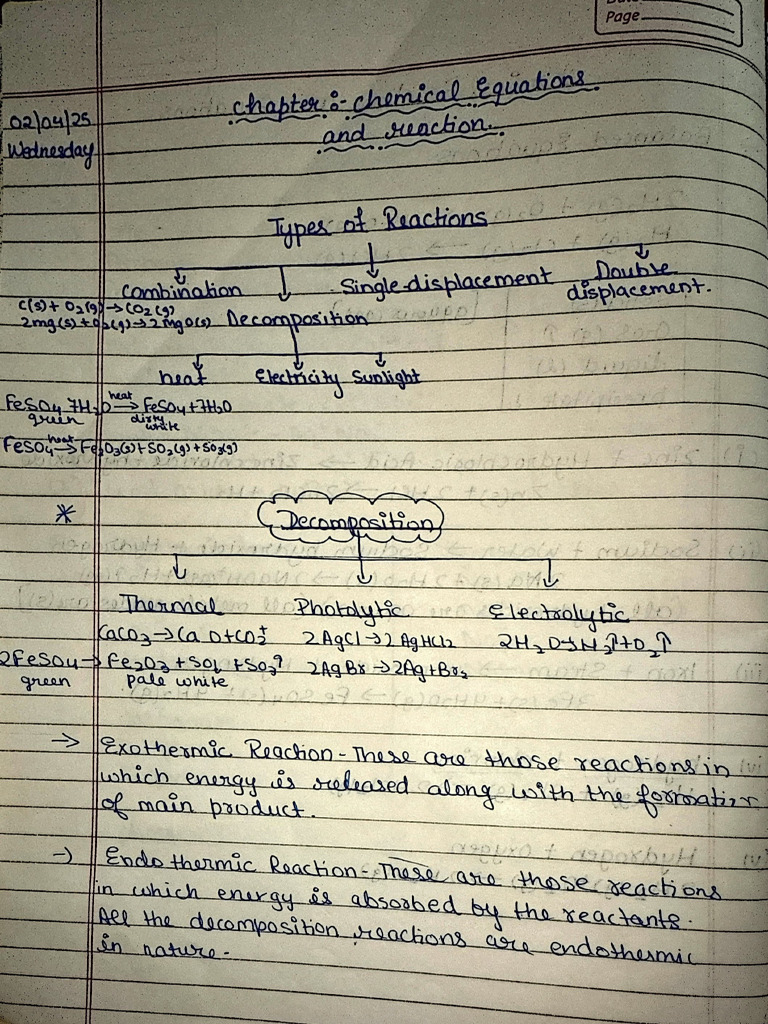 Page
02/04/25
Wednesday
chapter :- chemical Equations
and reaction.
Types of Reactions
Combination
Single-displacement
Double
displacement.
C(s) + O2(g) → CO2(g)
2mg(s) + O2(g) → 2 MgO(s)
Decomposition
heat
Electricity
Sunlight
FeSO4 7H2O heat→ FeSO4 + 7H2O
green
dirty
white
FeSO4 heat→ Fe2O3(s) + SO2(g) + SO3(g)
*
Decomposition
Thermal
Photolytic
Electrolytic
CaCO3 → CaO + CO2↑
2 AgCl → 2 AgHCl2
2H2O → H2↑ + O2↑
2FeSO4 → Fe2O3 + SO2 + SO3↑
2AgBr → 2Ag + Br2
green
pale white
→ Exothermic Reaction - These are those reactions in
which energy is released along with the formation
of main product.
→ Endothermic Reaction - These are those reactions
in which energy is absorbed by the reactants.
All the decomposition reactions are endothermic
in nature.